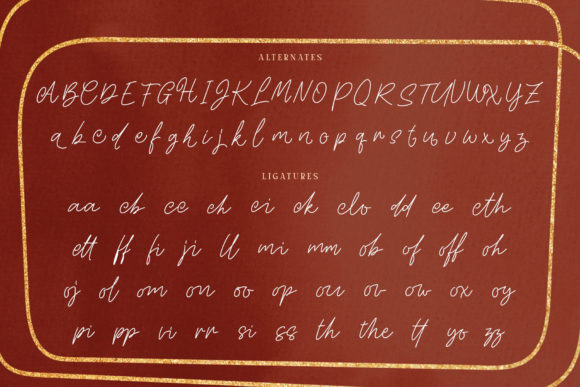 ALTERNATES
A B C D E F G H I J K L M N O P Q R S T U V W X Y Z
a b c d e f g h i j k l m n o p q r s t u v w x y z
LIGATURES
aa cb ce ch ci ck clo dd ee eth
ett ff fi ji ll mi mm ob of off oh
oj ol om on oo op ou ov ow ox oy
pi pp ri rr si ss th the tt yo zz